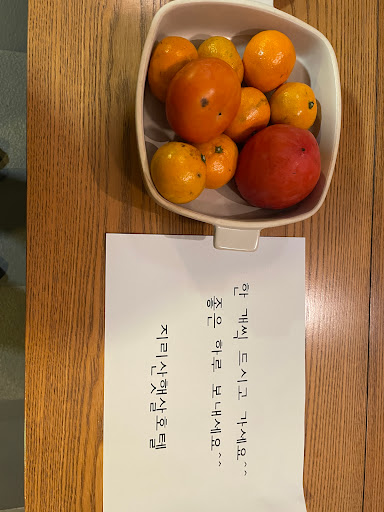 한 개씩 드시고 가세요^^
좋은 하루 보내세요^^
지리산햇살호텔